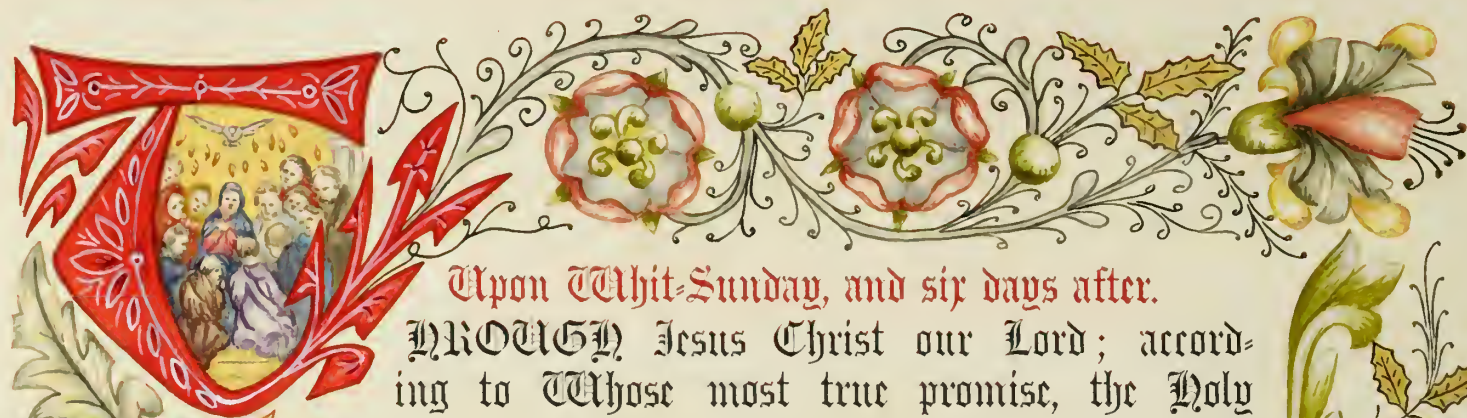 Upon Whit-Sunday, and six days after.
THROUGH Jesus Christ our Lord; accord-
ing to Whose most true promise, the Holy